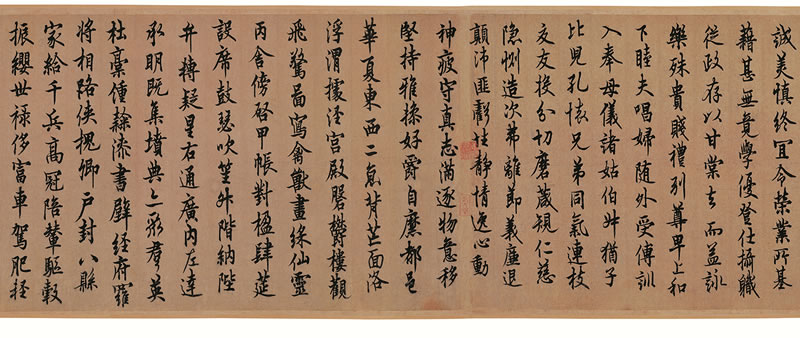 誠美慎終宜令榮業所基
藉甚無竟學優登仕攝職
從政存以甘棠去而益詠
樂殊貴賤禮別尊卑上和
下睦夫唱婦隨外受傅訓
入奉母儀諸姑伯叔猶子
比兒孔懷兄弟同氣連枝
交友投分切磨箴規仁慈
隱惻造次弗離節義廉退
顛沛匪虧性靜情逸心動
神疲守真志滿逐物意移
堅持雅操好爵自縻都邑
華夏東西二京背芒面洛
浮渭據涇宮殿磐欝樓觀
飛驚啚寫禽獸畫綵仙靈
丙舍傍啓甲帳對楹肆筵
設席鼓瑟吹笙升階納陛
弁轉疑星右通廣內左達
承明既集墳典亦聚羣英
杜稾鍾隸漆書壁經府羅
將相路俠槐卿戶封八縣
家給千兵高冠陪輦驅轂
振纓世祿侈富車駕肥輕